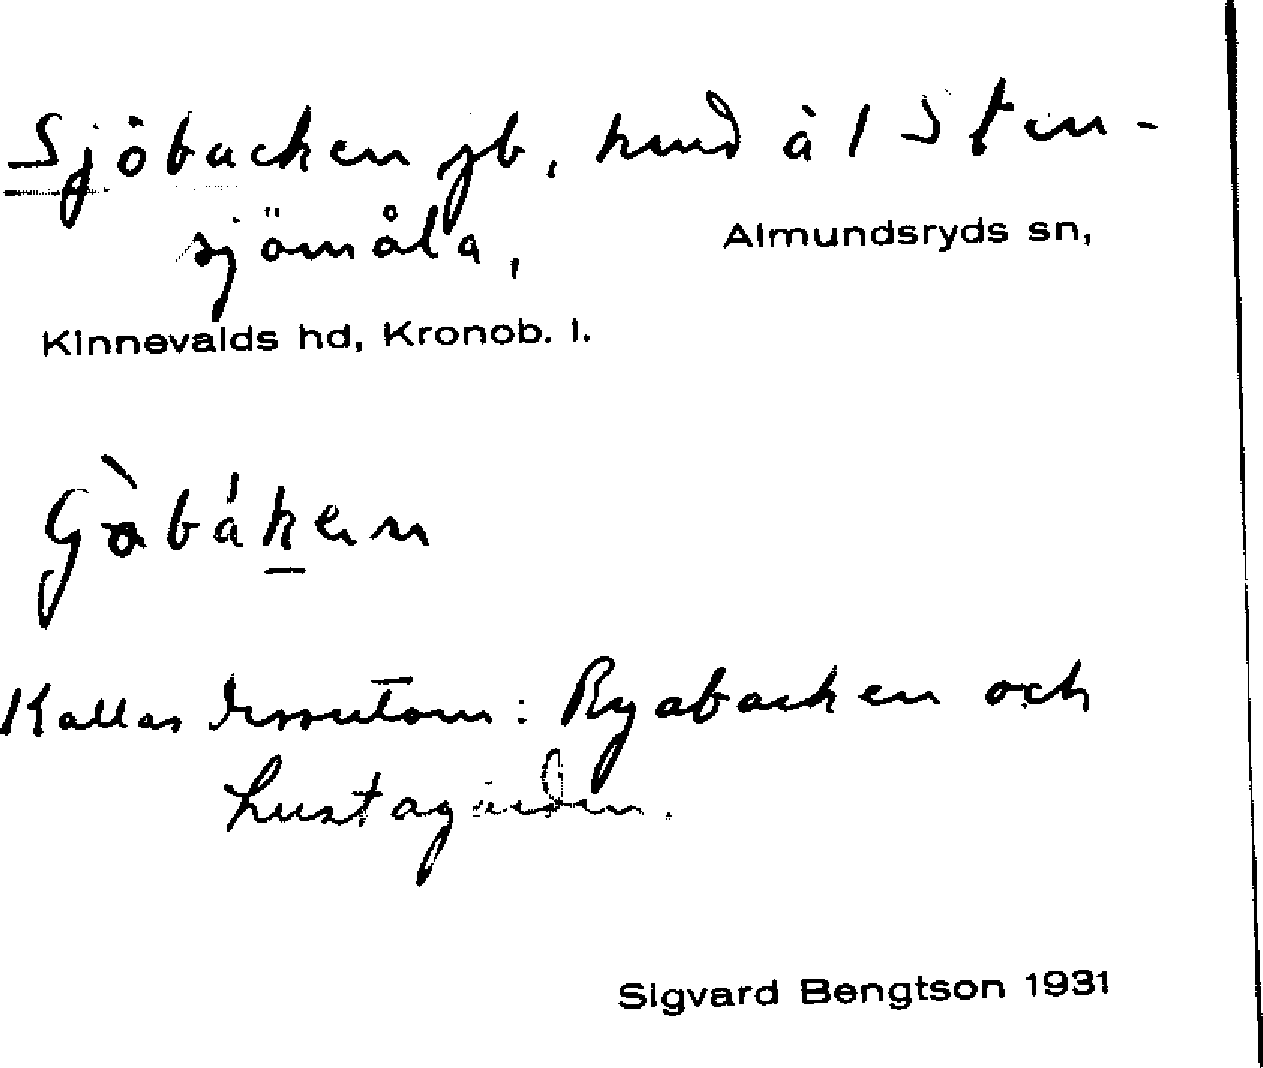 Sjöbacken jb, hmd å 1 Sten-
sjömåla, Almundsryds sn,
Kinnevalds hd, Kronob. l.
Kallas dessutom: Ryabacken och
Lustagården.
Sigvard Bengtson 1931